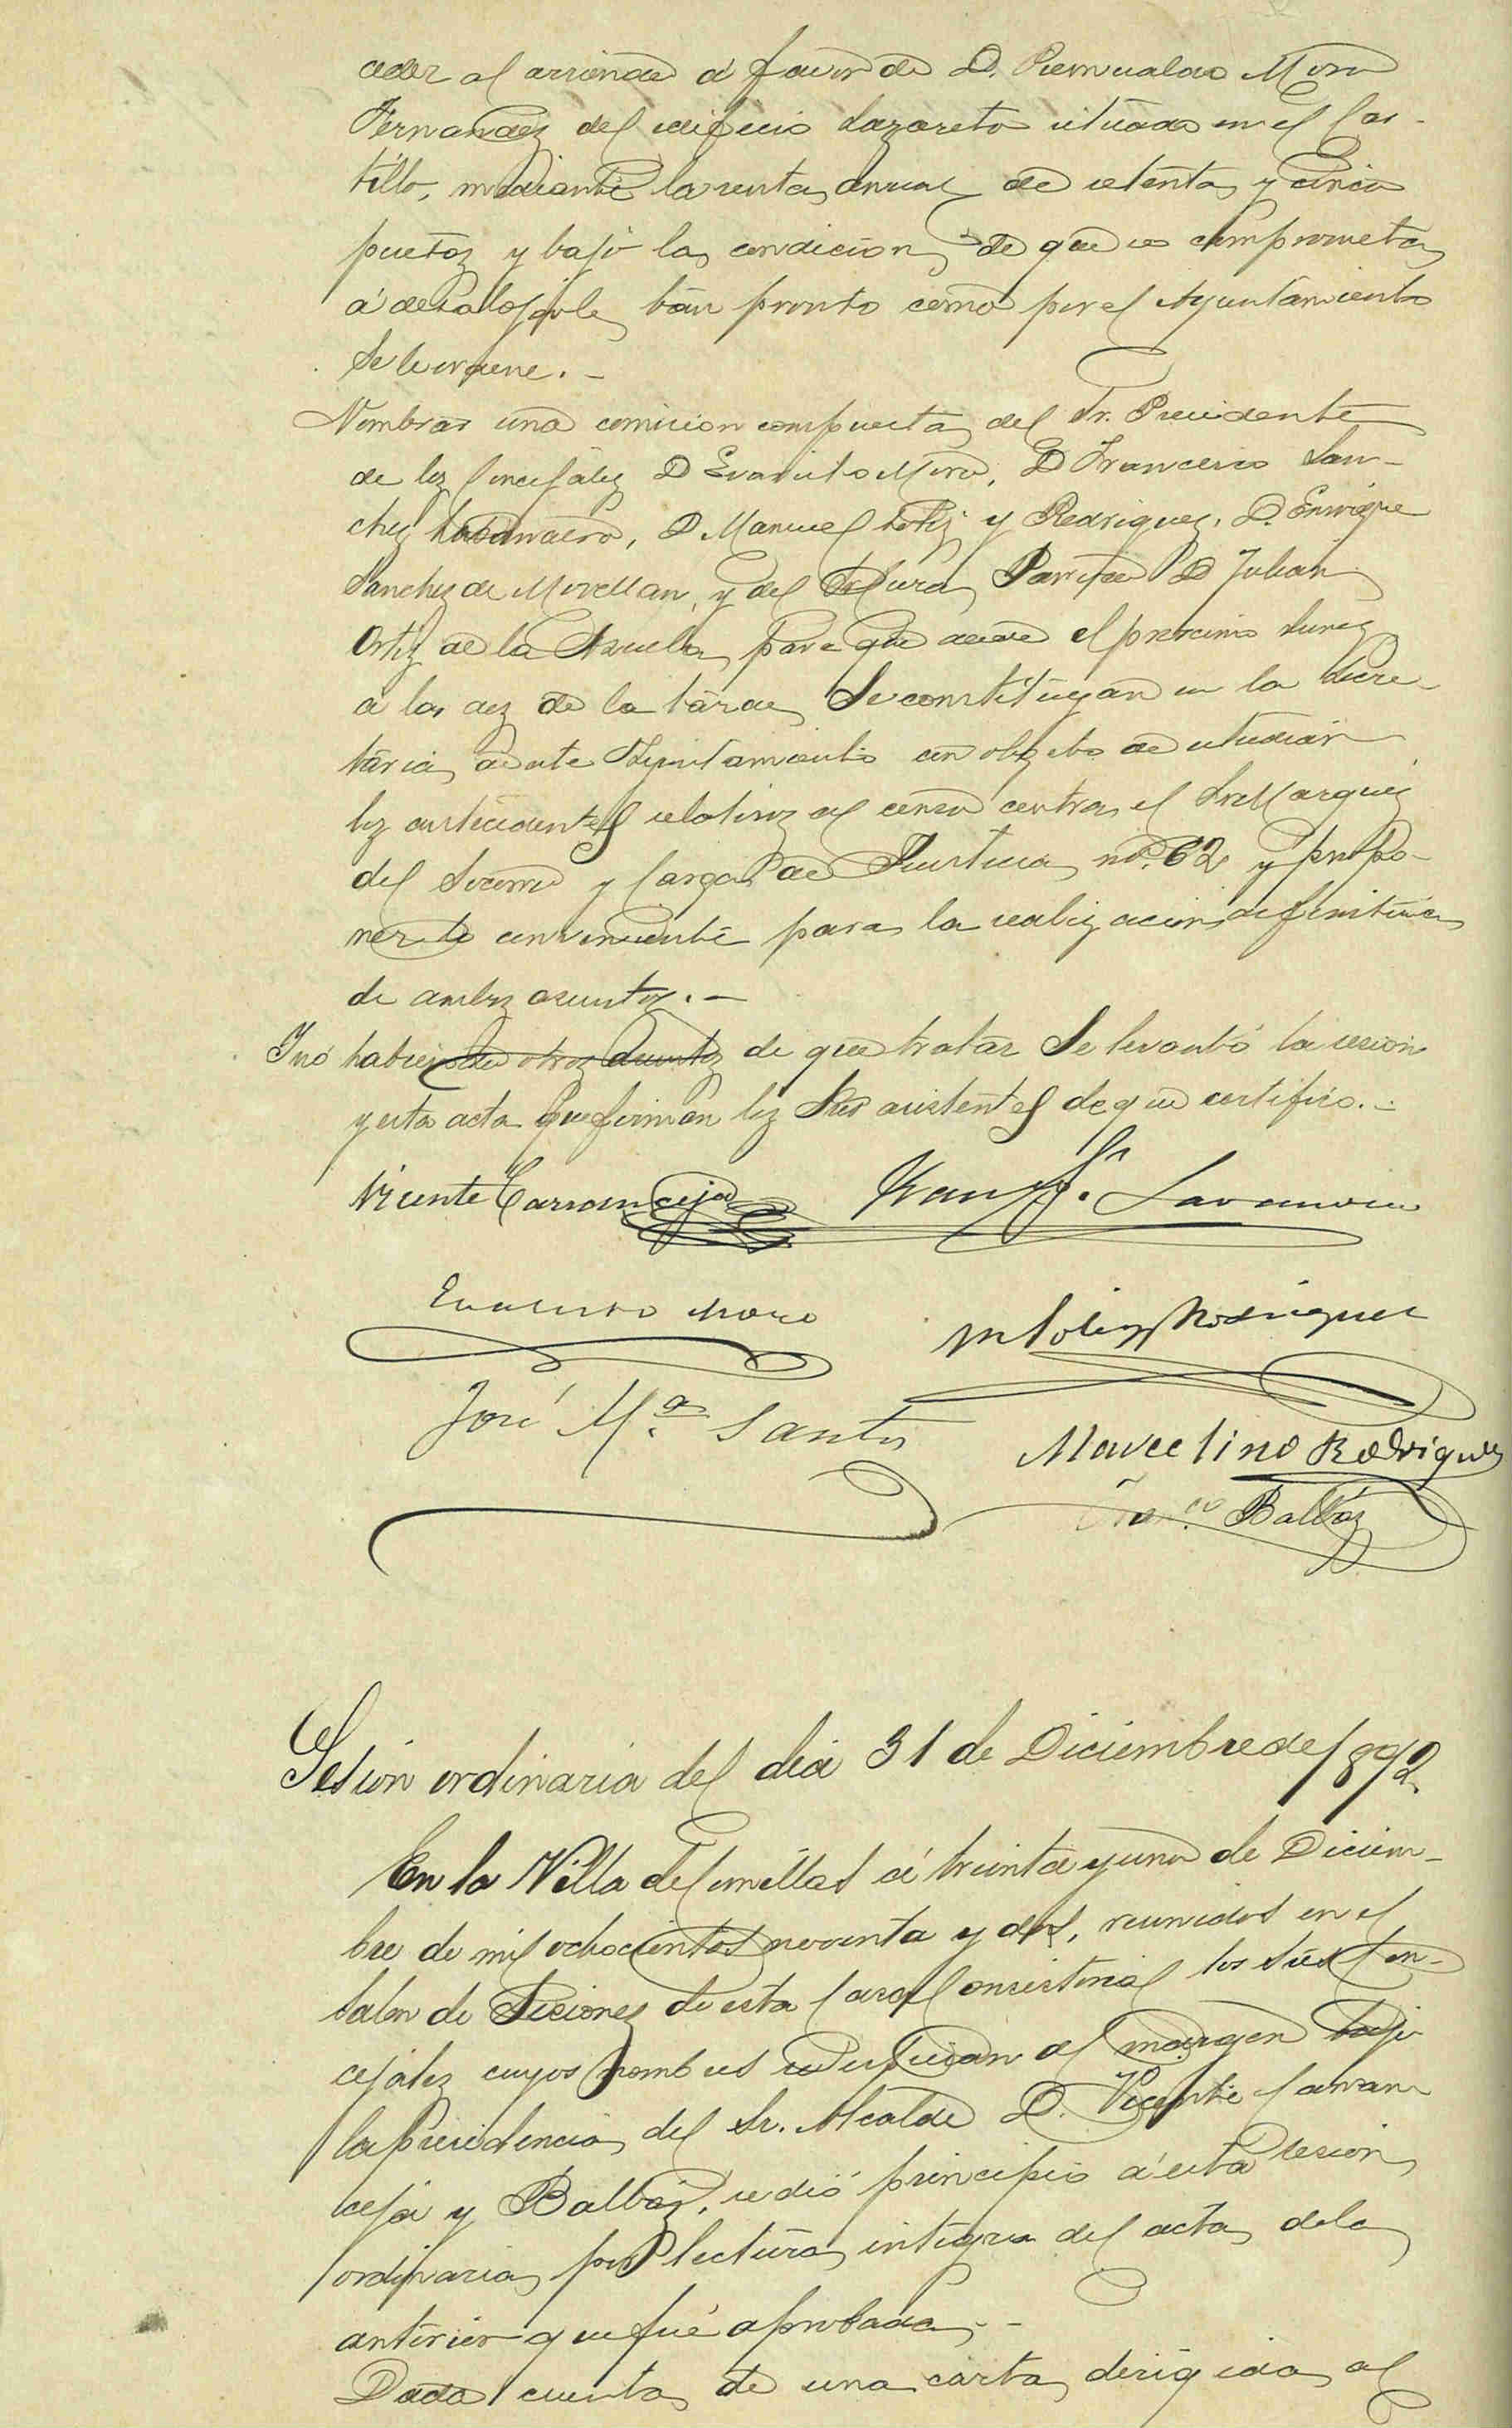 ceder al arriendo á favor de D. Romualdo Moro
Fernandez del edificio Lazareto situado en el Cas-
tillo, mediante la renta anual de setenta y cinco
pesetas y bajo la condicion de que se comprometa
á desalojarle tan pronto como por el Ayuntamiento
se le ordene. -
Nombrar una comision compuesta del Sr. Presidente
de los Concejales D Evaristo Moro, D Francisco San-
chez, D. Manuel Soliz y Rodriguez, D. Enrique
Sanchez de Movellan, y del Sr Cura Parroco D Julian
Ortiz de la Azuela para que desde el procsimo lunes
á las dez de la tarde se constituyan en la Secre-
taria de este Ayuntamiento con objeto de estudiar
los antecedentes relativos al censo contra el Sr Marques
del Socorro y Carga de Justicia nº. 62 y propo-
ner lo conveniente para la realizacion definitiva
de ambos asuntos. -
Y no habiendo otros asuntos de que tratar se levantó la sesion
y esta acta que firman los Sres asistentes de que certifico. -
Vicente Carranceja Fran.co S.
Evaristo Moro M Soliz Rodriguez
José M.ª Santos
Marcelino Rodriguez
Fran.co Balbás
Sesion ordinaria del dia 31 de Diciembre de 1892
En la Villa de Comillas á treinta y uno de Diciem-
bre de mil ochocientos noventa y dos, reunidos en el
Salon de Sesiones de esta Casa Consistorial los Sres Con-
cejales cuyos nombres se espresan al margen bajo
la Presidencia del Sr. Alcalde D. Vicente Carran-
ceja y Balbás, se dió principio á esta sesion
ordinaria por lectura integra del acta de la
anterior que fué aprobada. -
Dada cuenta de una carta dirigida al